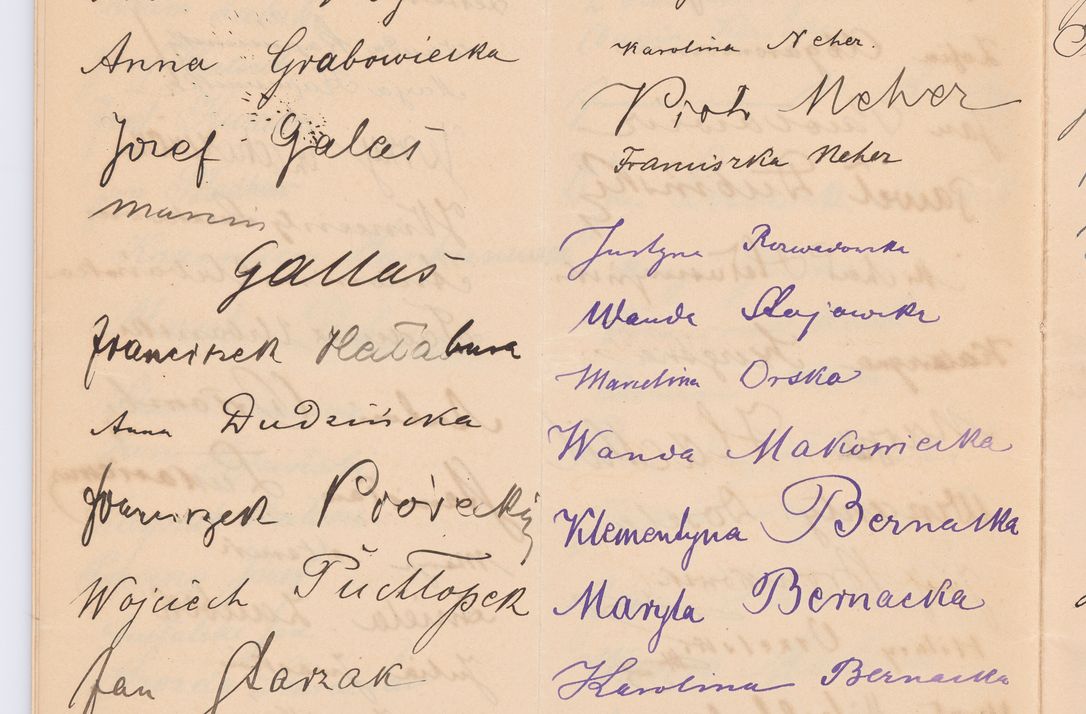 Anna Grabowiecka
Józef Galas
Marcin
Gallas
Franciszek Hałabura
Anna Dudzińska
Franciszek
Wojciech Puchłopek
Jan Starzak
Karolina Neher.
Piotr Neher
Franciszka Neher
Justyna Rozwadowska
Wanda Stojowska
Marcelina Orska
Wanda Makowiecka
Klementyna Bernacka
Maryla Bernacka
Karolina Bernacka